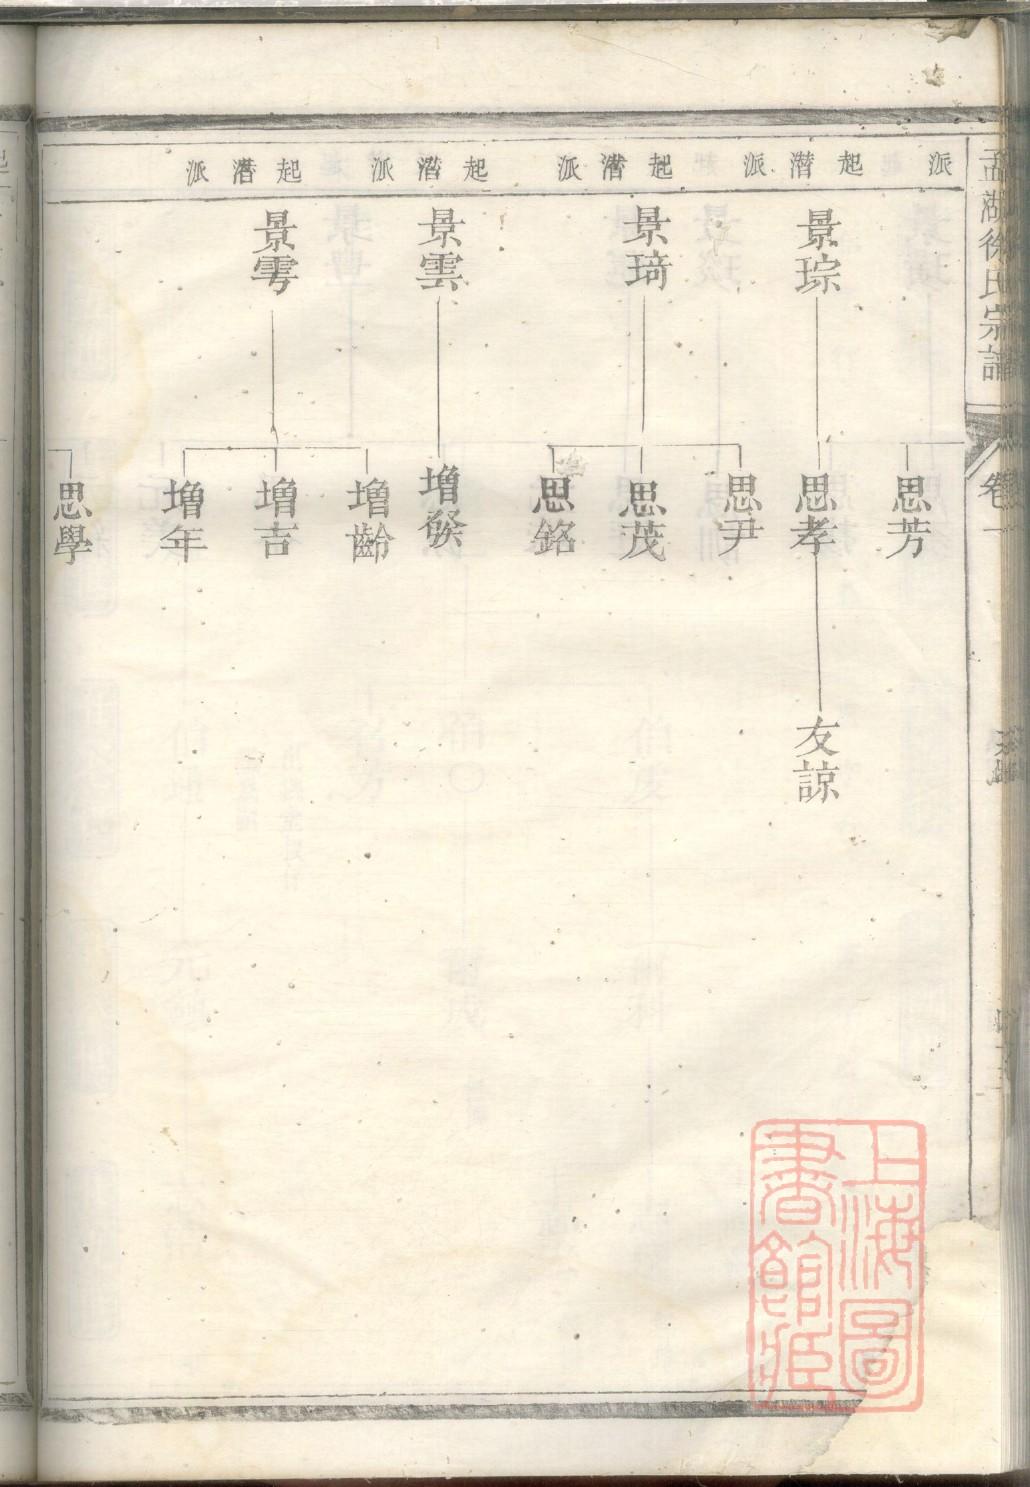 孟湖徐氏宗譜
卷一
派
起潛派
起潛派
起潛派
起潛派
景琮
景琦
景雲
景雩
思芳
思孝
思尹
思茂
思銘
增發
增齡
增吉
增年
思學
友諒
上海圖
書館藏